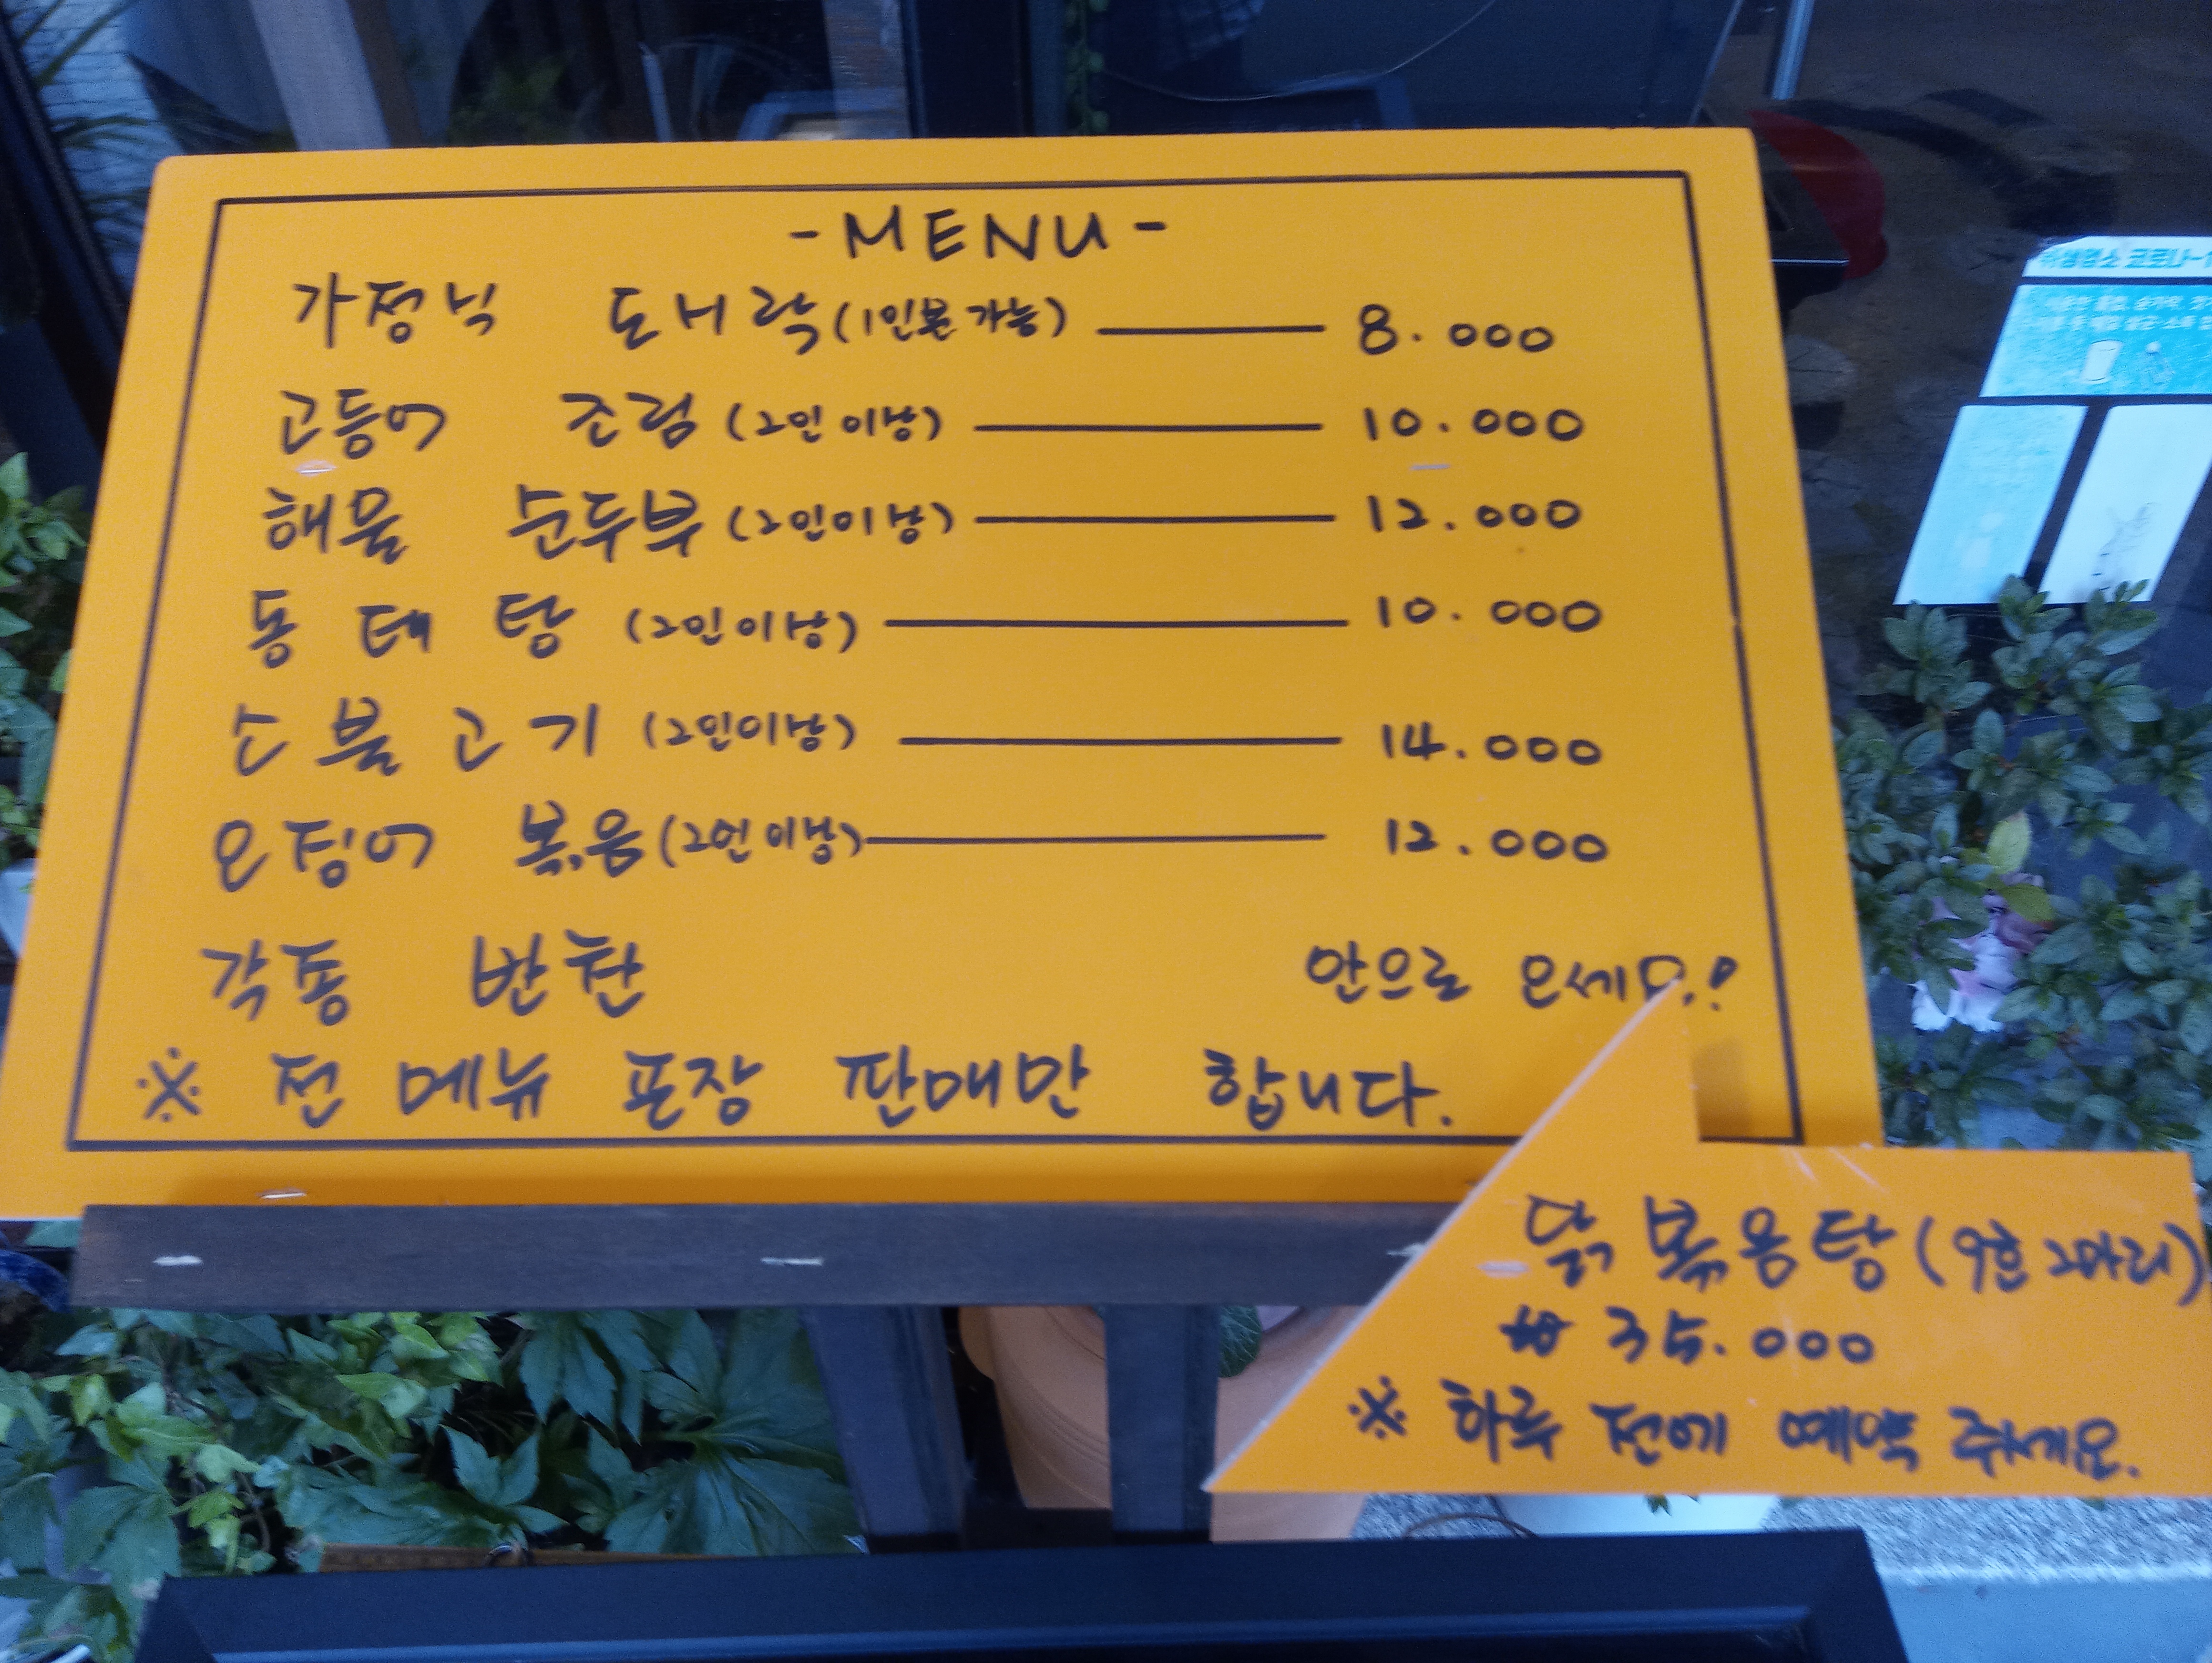 -MENU-
가정식 도시락(1인분 가능) 8.000
고등어 조림(2인 이상) 10.000
해물 순두부(2인이상) 12.000
동태탕(2인이상) 10.000
소불고기(2인이상) 14.000
오징어 볶음(2인이상) 12.000
각종 반찬 안으로 오세요!
※ 전 메뉴 포장 판매만 합니다.
닭볶음탕(9호 2마리)
₩ 35.000
※ 하루 전에 예약 주세요.
코로나-1